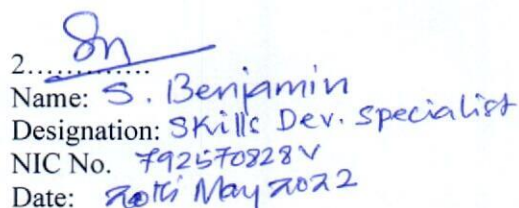 2.............
Name: S. Benjamin
Designation: Skills Dev. specialist
NIC No. 792570828V
Date: 20th May 2022